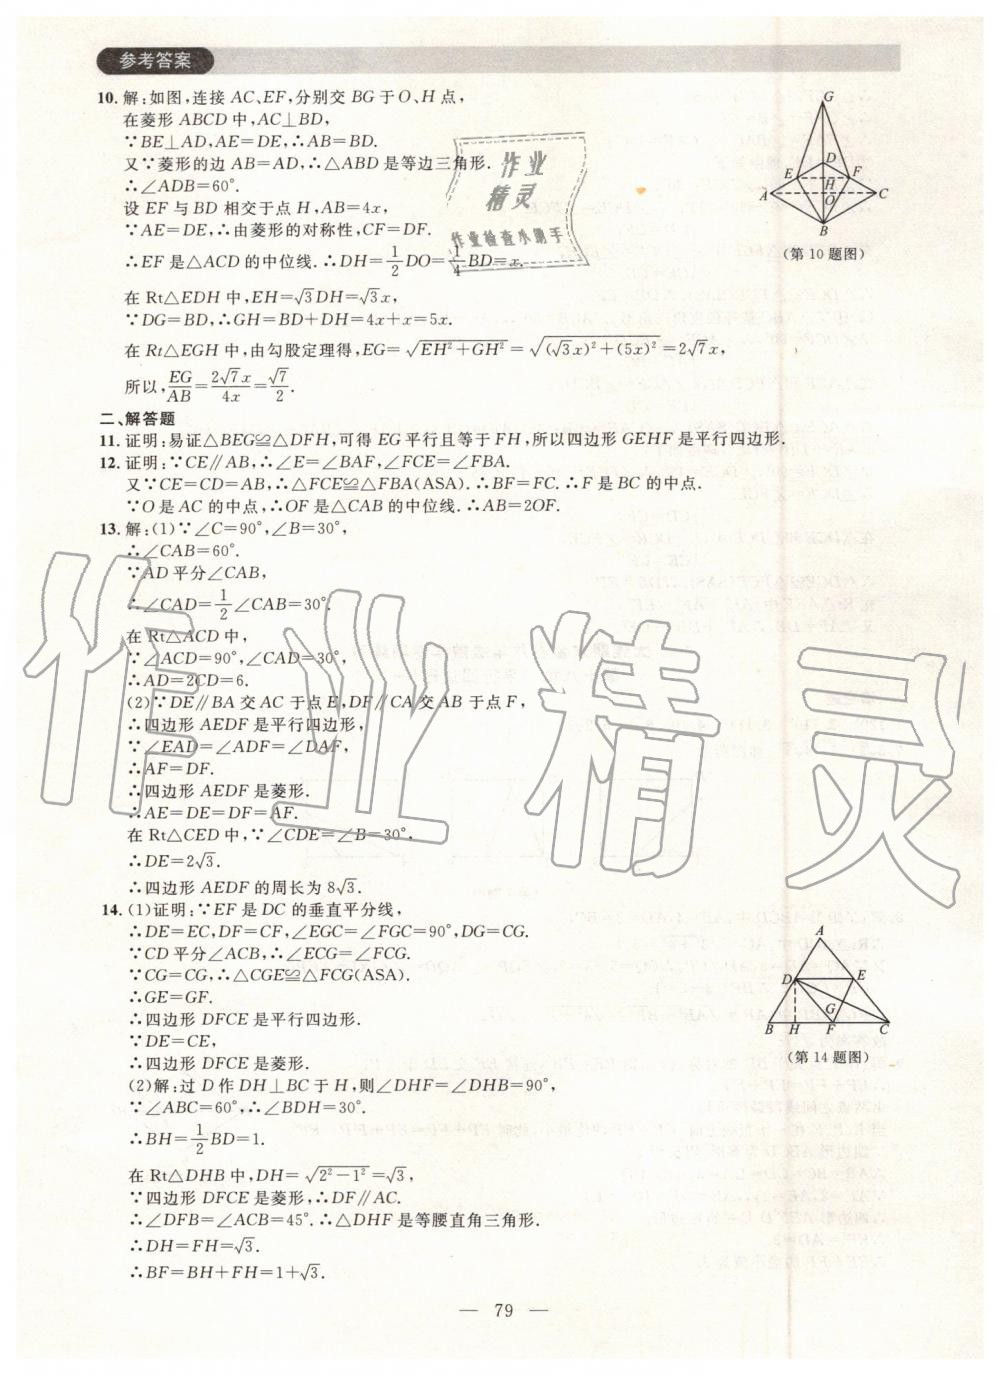 参考答案
10. 解:如图,连接 AC、EF,分别交 BG 于 O、H 点,
在菱形 ABCD 中,AC⊥BD,
∵BE⊥AD,AE=DE,∴AB=BD.
又∵菱形的边 AB=AD,∴△ABD 是等边三角形.
∴∠ADB=60°.
设 EF 与 BD 相交于点 H,AB=4x,
∵AE=DE,∴由菱形的对称性,CF=DF.
∴EF 是△ACD 的中位线.∴DH=1/2DO=1/4BD=x.
在 Rt△EDH 中,EH=√3DH=√3x,
∵DG=BD,∴GH=BD+DH=4x+x=5x.
在 Rt△EGH 中,由勾股定理得,EG=√(EH²+GH²)=√((√3x)²+(5x)²)=2√7x,
所以,EG/AB=2√7x/4x=√7/2.
G
D
E
F
A
H
C
O
B
(第 10 题图)
二、解答题
11. 证明:易证△BEG≌△DFH,可得 EG 平行且等于 FH,所以四边形 GEHF 是平行四边形.
12. 证明:∵CE∥AB,∴∠E=∠BAF,∠FCE=∠FBA.
又∵CE=CD=AB,∴△FCE≌△FBA(ASA).∴BF=FC.∴F 是 BC 的中点.
∵O 是 AC 的中点,∴OF 是△CAB 的中位线.∴AB=2OF.
13. 解:(1)∵∠C=90°,∠B=30°,
∴∠CAB=60°.
∵AD 平分∠CAB,
∴∠CAD=1/2∠CAB=30°.
在 Rt△ACD 中,
∵∠ACD=90°,∠CAD=30°,
∴AD=2CD=6.
(2)∵DE∥BA 交 AC 于点 E,DF∥CA 交 AB 于点 F,
∴四边形 AEDF 是平行四边形,
∵∠EAD=∠ADF=∠DAF,
∴AF=DF.
∴四边形 AEDF 是菱形.
∴AE=DE=DF=AF.
在 Rt△CED 中,∵∠CDE=∠B=30°,
∴DE=2√3.
∴四边形 AEDF 的周长为 8√3.
14. (1)证明:∵EF 是 DC 的垂直平分线,
∴DE=EC,DF=CF,∠EGC=∠FGC=90°,DG=CG.
∵CD 平分∠ACB,∴∠ECG=∠FCG.
∵CG=CG,∴△CGE≌△FCG(ASA).
∴GE=GF.
∴四边形 DFCE 是平行四边形.
∵DE=CE,
∴四边形 DFCE 是菱形.
(2)解:过 D 作 DH⊥BC 于 H,则∠DHF=∠DHB=90°,
∵∠ABC=60°,∴∠BDH=30°.
∴BH=1/2BD=1.
在 Rt△DHB 中,DH=√(2²−1²)=√3,
∵四边形 DFCE 是菱形,∴DF∥AC.
∴∠DFB=∠ACB=45°.∴△DHF 是等腰直角三角形.
∴DH=FH=√3.
∴BF=BH+FH=1+√3.
A
D
E
G
B
H
F
C
(第 14 题图)
— 79 —
作业
精灵
作业检查小助手
作业精灵